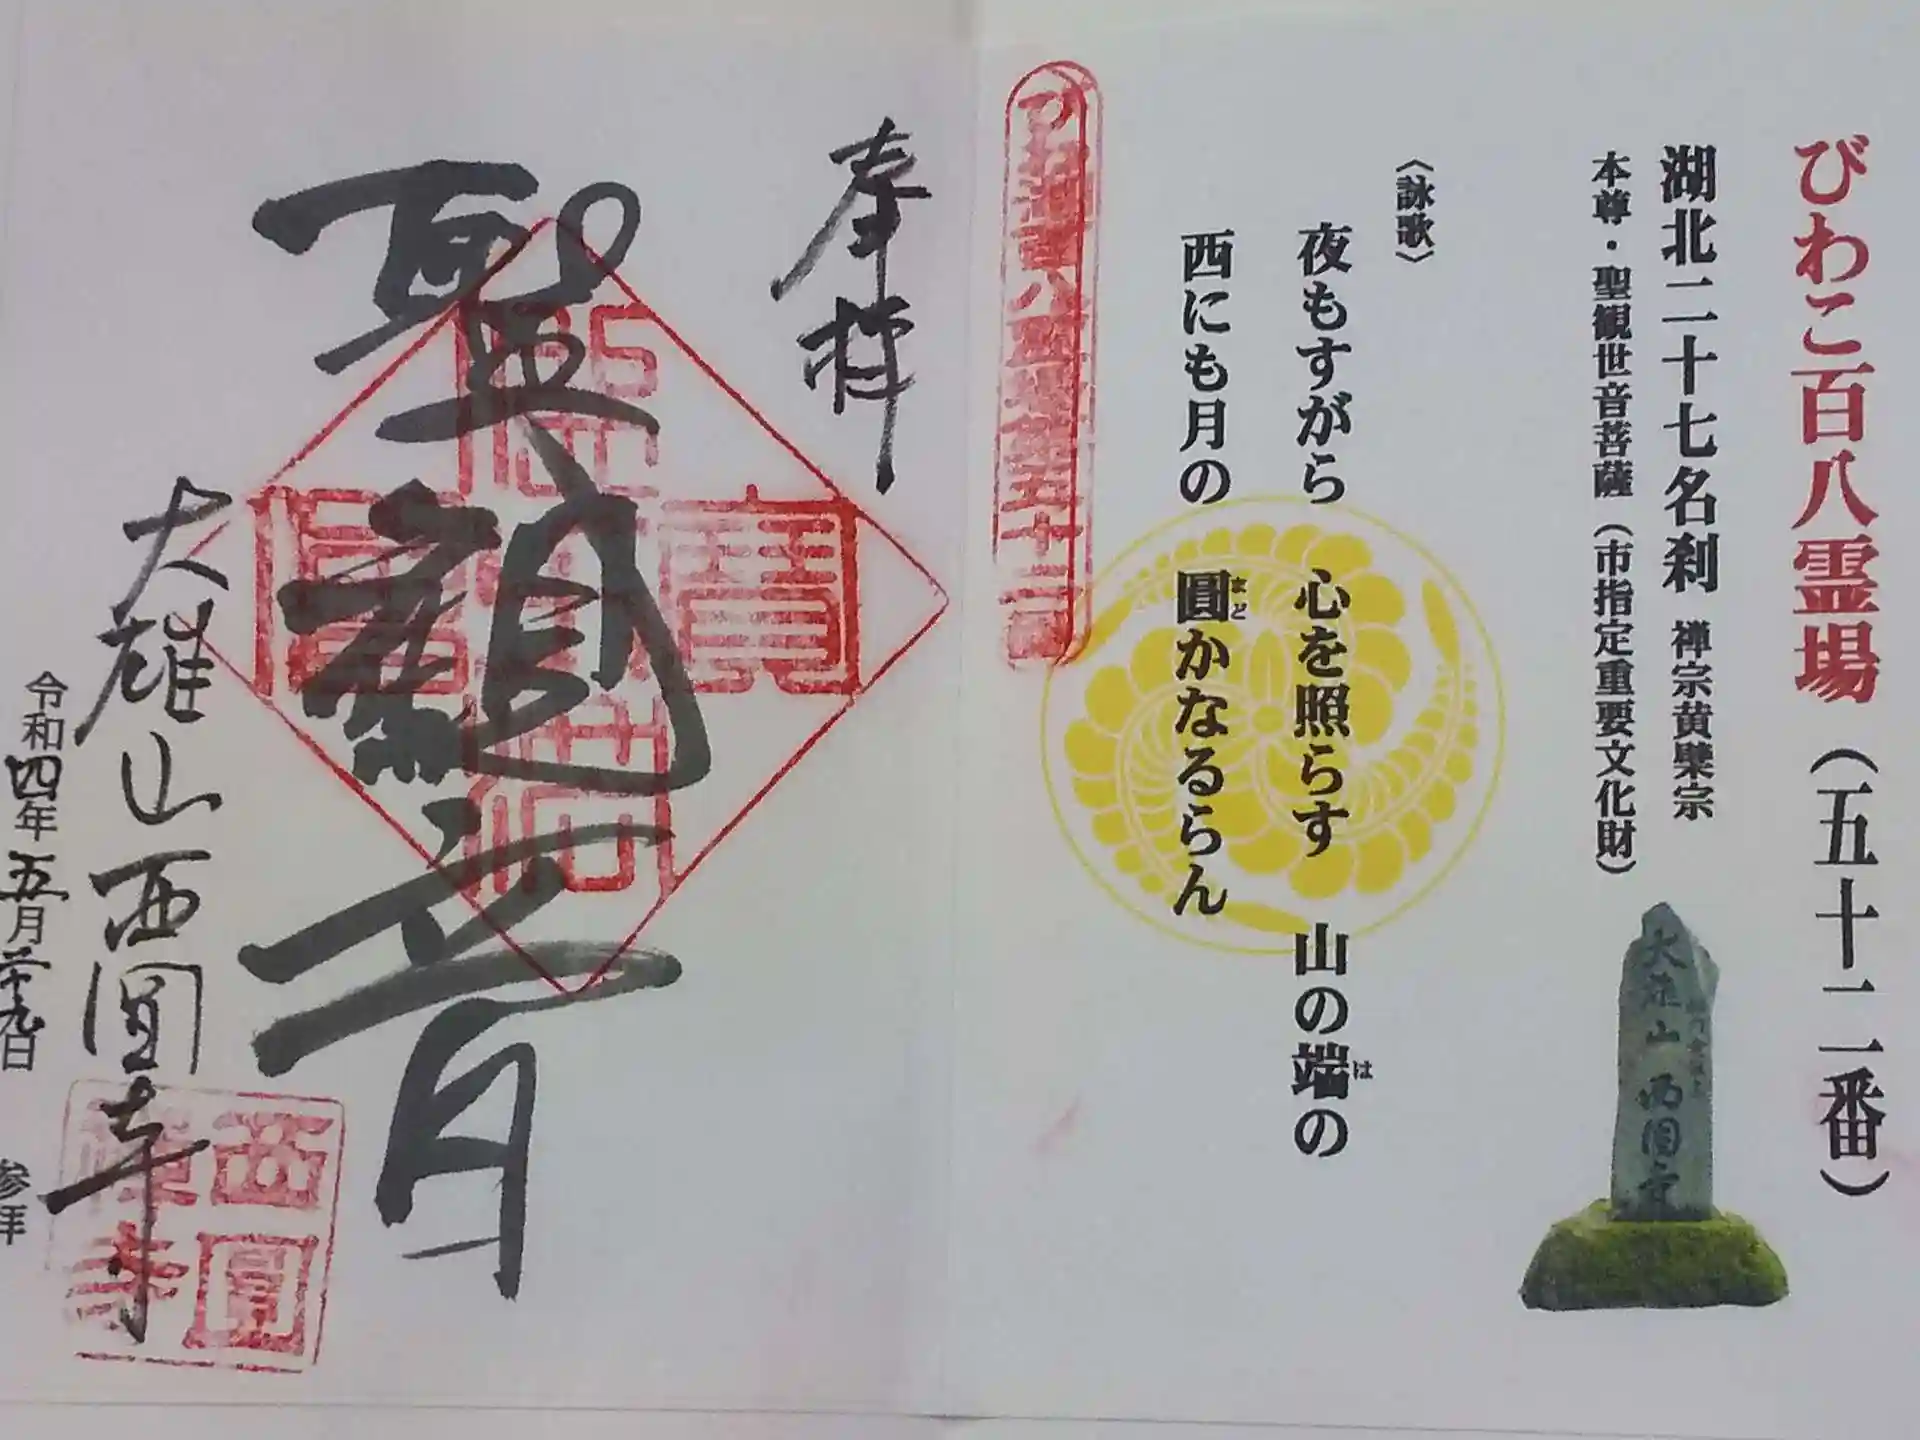 びわこ百八霊場（五十二番）
湖北二十七名刹 禅宗黄檗宗
本尊・聖観世音菩薩（市指定重要文化財）
大雄山 西圓寺
〈詠歌〉
夜もすがら 心を照らす 山の端の
は
西にも月の 圓かなるらん
まど
びわ湖百八霊場第五十二番
奉拝
聖観音
佛法僧寶
大雄山西圓寺
西圓禅寺
令和四年五月廿九日 参拝